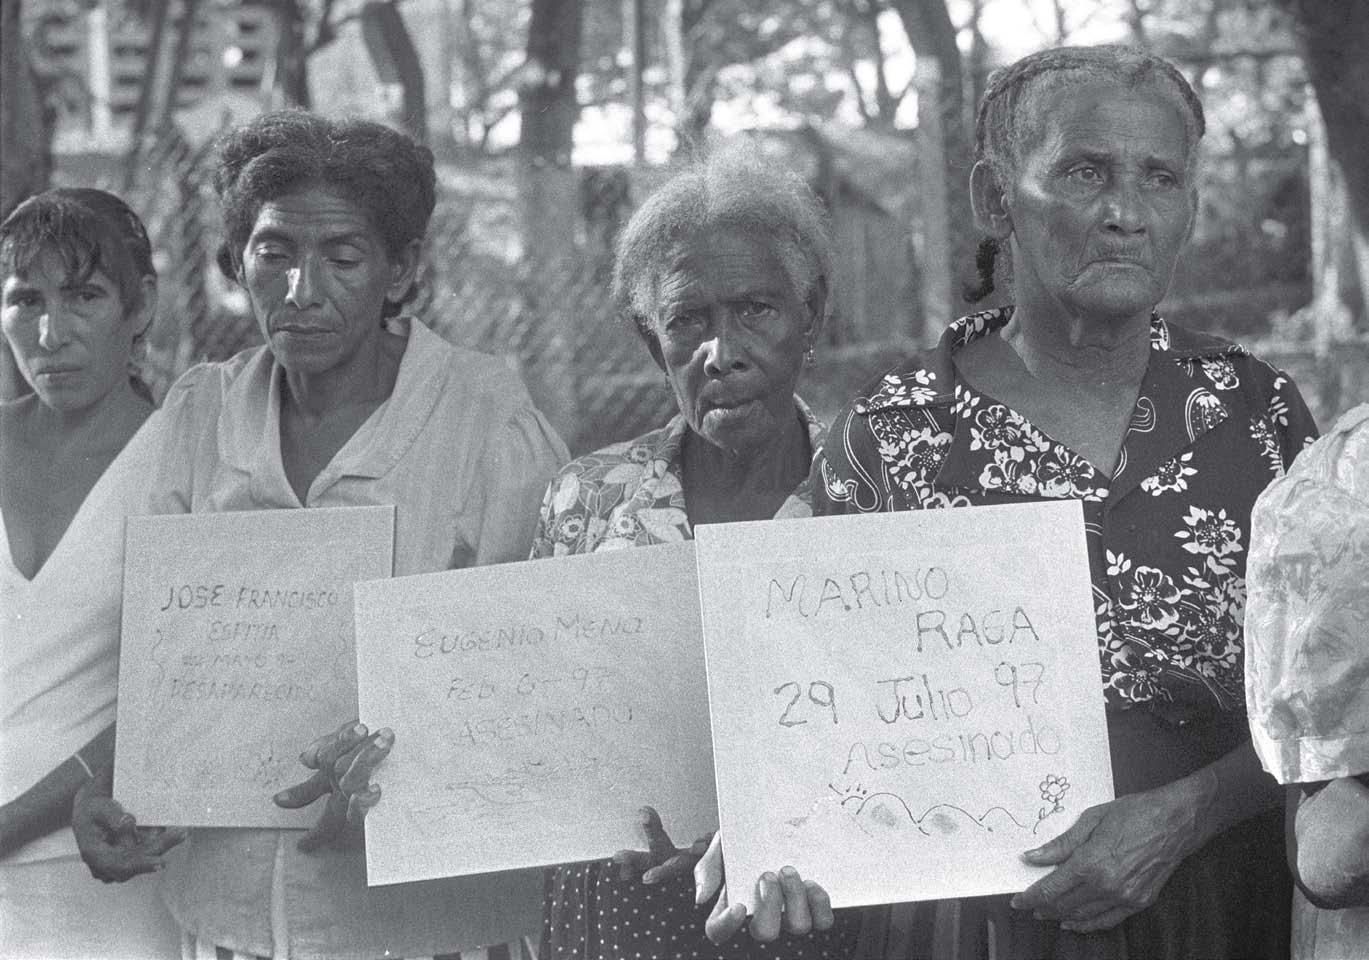 JOSE FRANCISCO
ESPITIA
MAYO
DESAPARECIDO
EUGENIO MENO
FEB 6-97
ASESINADO
MARINO
RAGA
29 Julio 97
Asesinado